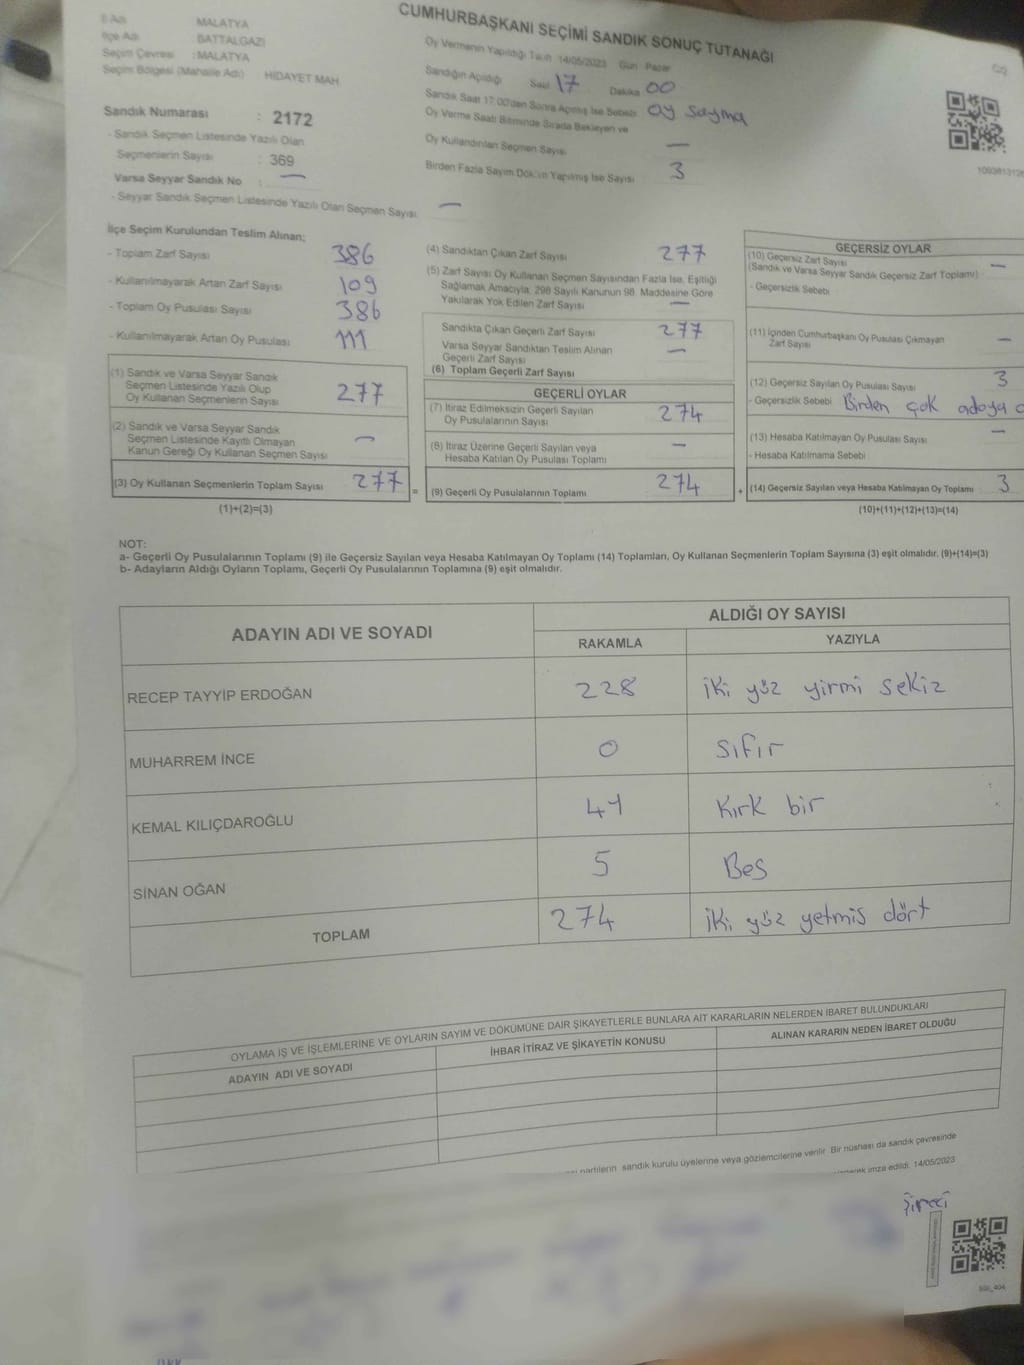 CUMHURBAŞKANI SEÇİMİ SANDIK SONUÇ TUTANAĞI
İl Adı MALATYA
İlçe Adı BATTALGAZİ
Seçim Çevresi : MALATYA
Seçim Bölgesi (Mahalle Adı) HİDAYET MAH.
Sandık Numarası : 2172
- Sandık Seçmen Listesinde Yazılı Olan
Seçmenlerin Sayısı : 369
Varsa Seyyar Sandık No : —
- Seyyar Sandık Seçmen Listesinde Yazılı Olan Seçmen Sayısı —
Oy Vermenin Yapıldığı Tarih 14/05/2023 Gün Pazar
Sandığın Açıldığı Saat 17 Dakika 00
Sandık Saat 17:00'den Sonra Açılmış İse Sebebi: Oy sayma
Oy Verme Saati Bitiminde Sırada Bekleyen ve
Oy Kullandırılan Seçmen Sayısı —
Birden Fazla Sayım Döküm Yapılmış İse Sayısı 3
İlçe Seçim Kurulundan Teslim Alınan;
- Toplam Zarf Sayısı 386
- Kullanılmayarak Artan Zarf Sayısı 109
- Toplam Oy Pusulası Sayısı 386
- Kullanılmayarak Artan Oy Pusulası 111
(1) Sandık ve Varsa Seyyar Sandık
Seçmen Listesinde Yazılı Olup
Oy Kullanan Seçmenlerin Sayısı 277
(2) Sandık ve Varsa Seyyar Sandık
Seçmen Listesinde Kayıtlı Olmayan
Kanun Gereği Oy Kullanan Seçmen Sayısı —
(3) Oy Kullanan Seçmenlerin Toplam Sayısı 277 =
(1)+(2)=(3)
(4) Sandıktan Çıkan Zarf Sayısı 277
(5) Zarf Sayısı Oy Kullanan Seçmen Sayısından Fazla İse, Eşitliği
Sağlamak Amacıyla, 298 Sayılı Kanunun 98. Maddesine Göre
Yakılarak Yok Edilen Zarf Sayısı —
Sandıkta Çıkan Geçerli Zarf Sayısı 277
Varsa Seyyar Sandıktan Teslim Alınan —
Geçerli Zarf Sayısı
(6) Toplam Geçerli Zarf Sayısı
GEÇERLİ OYLAR
(7) İtiraz Edilmeksizin Geçerli Sayılan
Oy Pusulalarının Sayısı 274
(8) İtiraz Üzerine Geçerli Sayılan veya —
Hesaba Katılan Oy Pusulası Toplamı
(9) Geçerli Oy Pusulalarının Toplamı 274 +
GEÇERSİZ OYLAR
(10) Geçersiz Zarf Sayısı —
(Sandık ve Varsa Seyyar Sandık Geçersiz Zarf Toplamı)
- Geçersizlik Sebebi
(11) İçinden Cumhurbaşkanı Oy Pusulası Çıkmayan —
Zarf Sayısı
(12) Geçersiz Sayılan Oy Pusulası Sayısı 3
- Geçersizlik Sebebi Birden çok adaya
(13) Hesaba Katılmayan Oy Pusulası Sayısı —
- Hesaba Katılmama Sebebi
(14) Geçersiz Sayılan veya Hesaba Katılmayan Oy Toplamı 3
(10)+(11)+(12)+(13)=(14)
NOT:
a- Geçerli Oy Pusulalarının Toplamı (9) ile Geçersiz Sayılan veya Hesaba Katılmayan Oy Toplamı (14) Toplamları, Oy Kullanan Seçmenlerin Toplam Sayısına (3) eşit olmalıdır. (9)+(14)=(3)
b- Adayların Aldığı Oyların Toplamı, Geçerli Oy Pusulalarının Toplamına (9) eşit olmalıdır.
ADAYIN ADI VE SOYADI ALDIĞI OY SAYISI
RAKAMLA YAZIYLA
RECEP TAYYİP ERDOĞAN 228 iki yüz yirmi sekiz
MUHARREM İNCE 0 sıfır
KEMAL KILIÇDAROĞLU 41 Kırk bir
SİNAN OĞAN 5 Bes
TOPLAM 274 iki yüz yetmis dört
OYLAMA İŞ VE İŞLEMLERİNE VE OYLARIN SAYIM VE DÖKÜMÜNE DAİR ŞİKAYETLERLE BUNLARA AİT KARARLARIN NELERDEN İBARET BULUNDUKLARI
ADAYIN ADI VE SOYADI İHBAR İTİRAZ VE ŞİKAYETİN KONUSU ALINAN KARARIN NEDEN İBARET OLDUĞU
partilerin sandık kurulu üyelerine veya gözlemcilerine verilir. Bir nüshası da sandık çevresinde
imza edildi. 14/05/2023